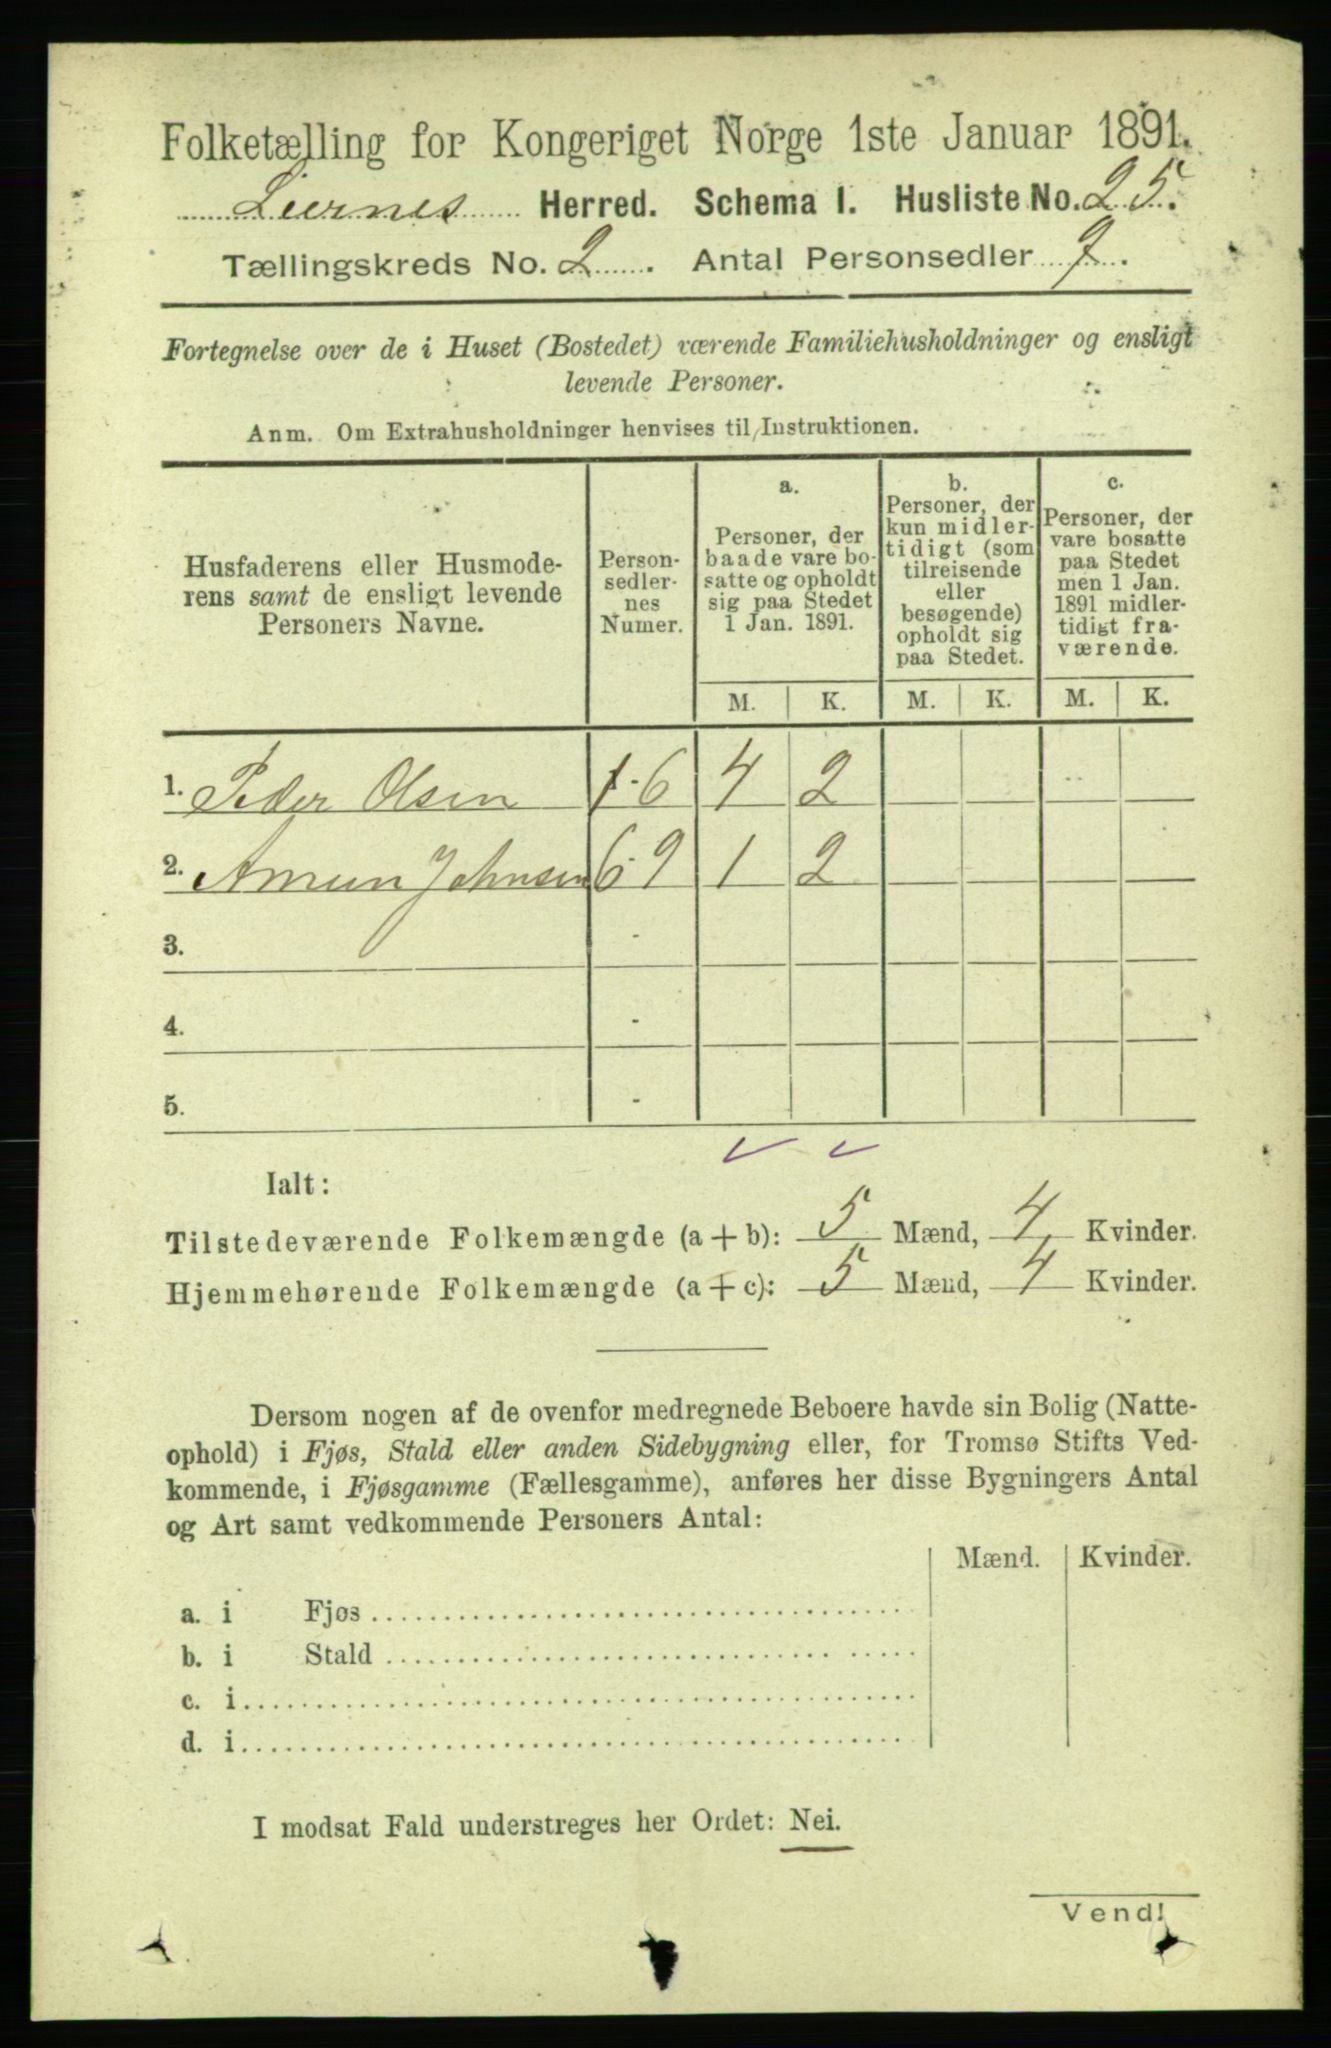 Folketælling for Kongeriget Norge 1ste Januar 1891.
Herred. Schema I. Husliste No. 25.
Tællingskreds No. 2. Antal Personsedler 9.
Fortegnelse over de i Huset (Bostedet) værende Familiehusholdninger og ensligt
levende Personer.
Anm. Om Extrahusholdninger henvises til Instruktionen.
Husfaderens eller Husmode-
rens samt de ensligt levende
Personers Navne.
Person-
sedler-
nes
Numer.
a.
Personer, der
baade vare bo-
satte og opholdt
sig paa Stedet
1 Jan. 1891.
b.
Personer, der
kun midler-
tidigt (som
tilreisende
eller
besøgende)
opholdt sig
paa Stedet.
c.
Personer, der
vare bosatte
paa Stedet
men 1 Jan.
1891 midler-
tidigt fra-
værende.
M. K. M. K. M. K.
1. Peder Olsen 1-6 4 2
2. Johnsen 6-9 1 2
3. -
4. -
5. -
Ialt:
Tilstedeværende Folkemængde (a + b): 5 Mænd, 4 Kvinder.
Hjemmehørende Folkemængde (a + c): 5 Mænd, 4 Kvinder.
Dersom nogen af de ovenfor medregnede Beboere havde sin Bolig (Natte-
ophold) i Fjøs, Stald eller anden Sidebygning eller, for Tromsø Stifts Ved-
kommende, i Fjøsgamme (Fællesgamme), anføres her disse Bygningers Antal
og Art samt vedkommende Personers Antal:
Mænd. Kvinder.
a. i Fjøs
b. i Stald
c. i
d. i
I modsat Fald understreges her Ordet: Nei.
Vend!